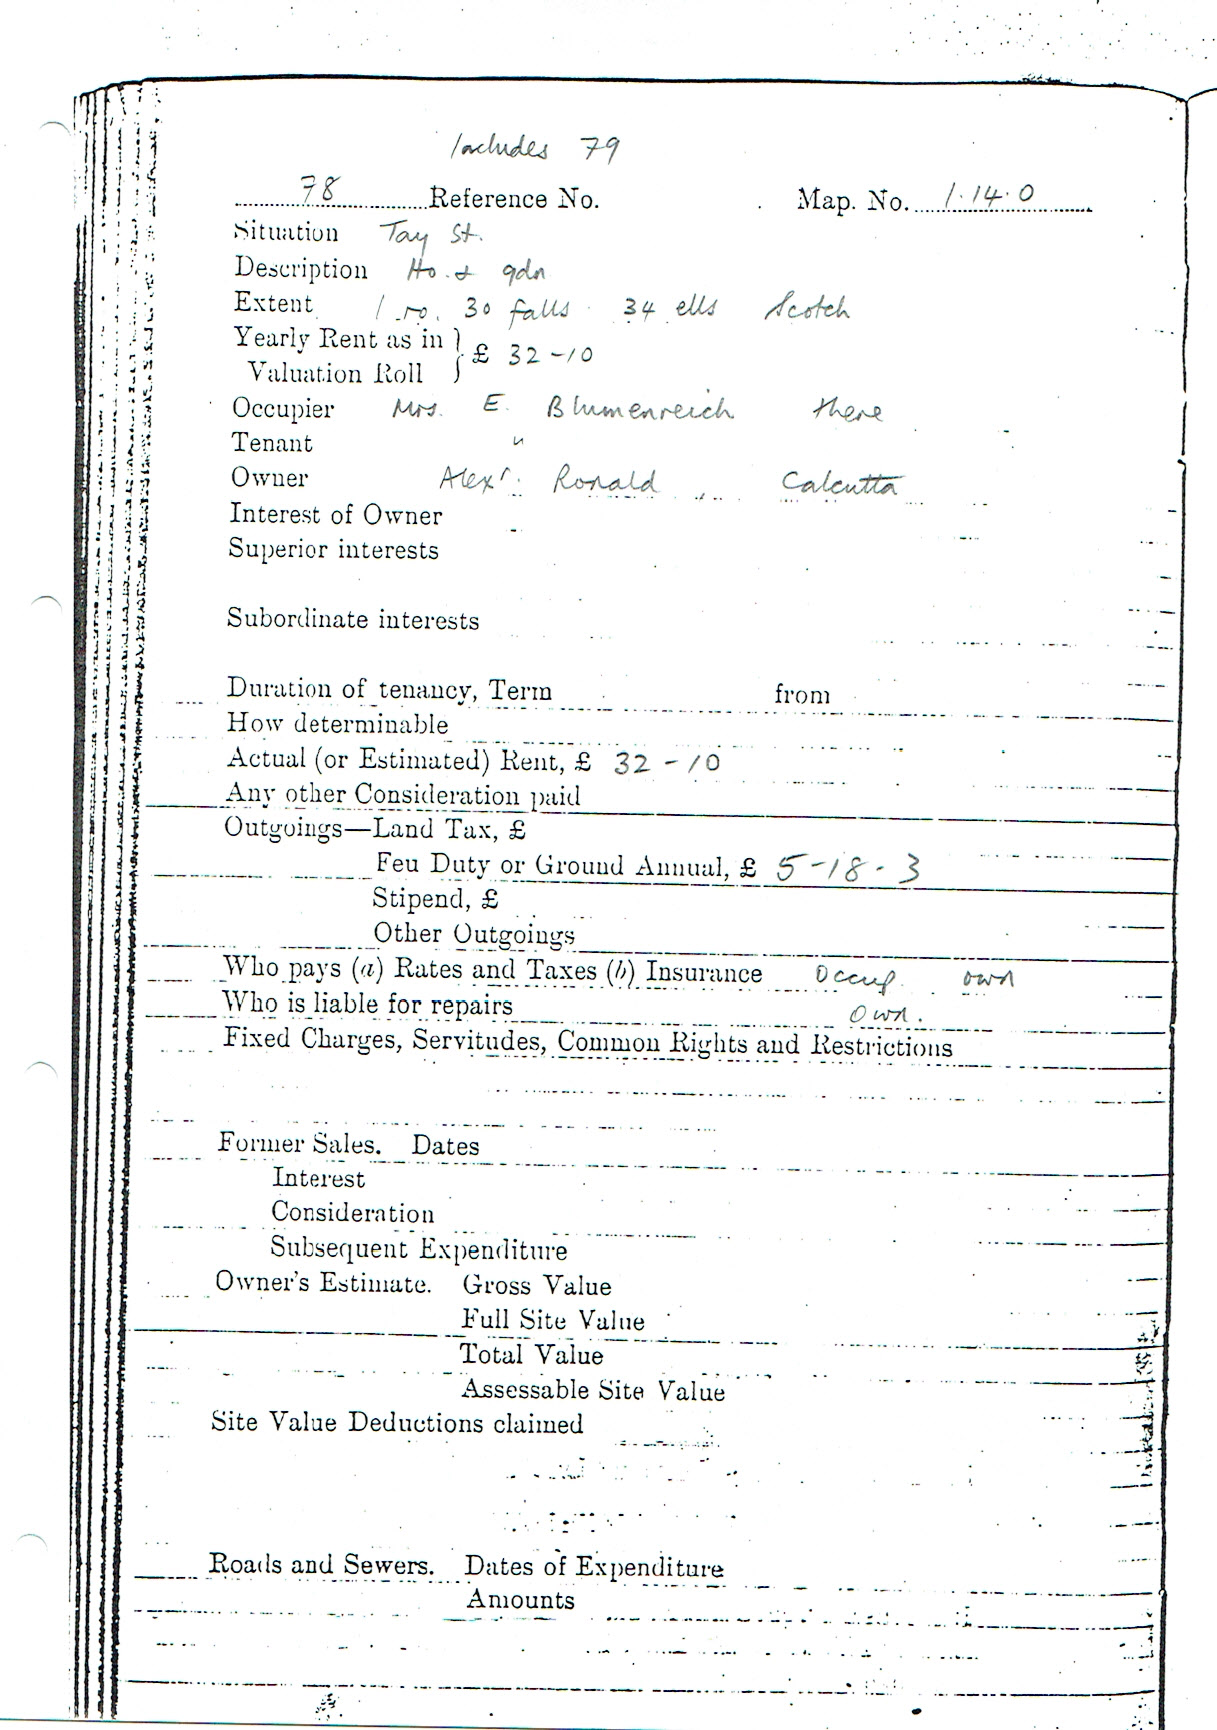 Includes 79
78 Reference No. Map. No. 1.14.0
Situation Tay St.
Description Ho. & gdn
Extent 1 ro. 30 falls 34 ells Scotch
Yearly Rent as in
Valuation Roll } £ 32-10
Occupier Mrs. E. Blumenreich there
Tenant "
Owner Alexr. Ronald, Calcutta
Interest of Owner
Superior interests
Subordinate interests
Duration of tenancy, Term from
How determinable
Actual (or Estimated) Rent, £ 32-10
Any other Consideration paid
Outgoings—Land Tax, £
Feu Duty or Ground Annual, £ 5-18-3
Stipend, £
Other Outgoings
Who pays (a) Rates and Taxes (b) Insurance Occup. own
Who is liable for repairs own.
Fixed Charges, Servitudes, Common Rights and Restrictions
Former Sales. Dates
Interest
Consideration
Subsequent Expenditure
Owner's Estimate. Gross Value
Full Site Value
Total Value
Assessable Site Value
Site Value Deductions claimed
Roads and Sewers. Dates of Expenditure
Amounts